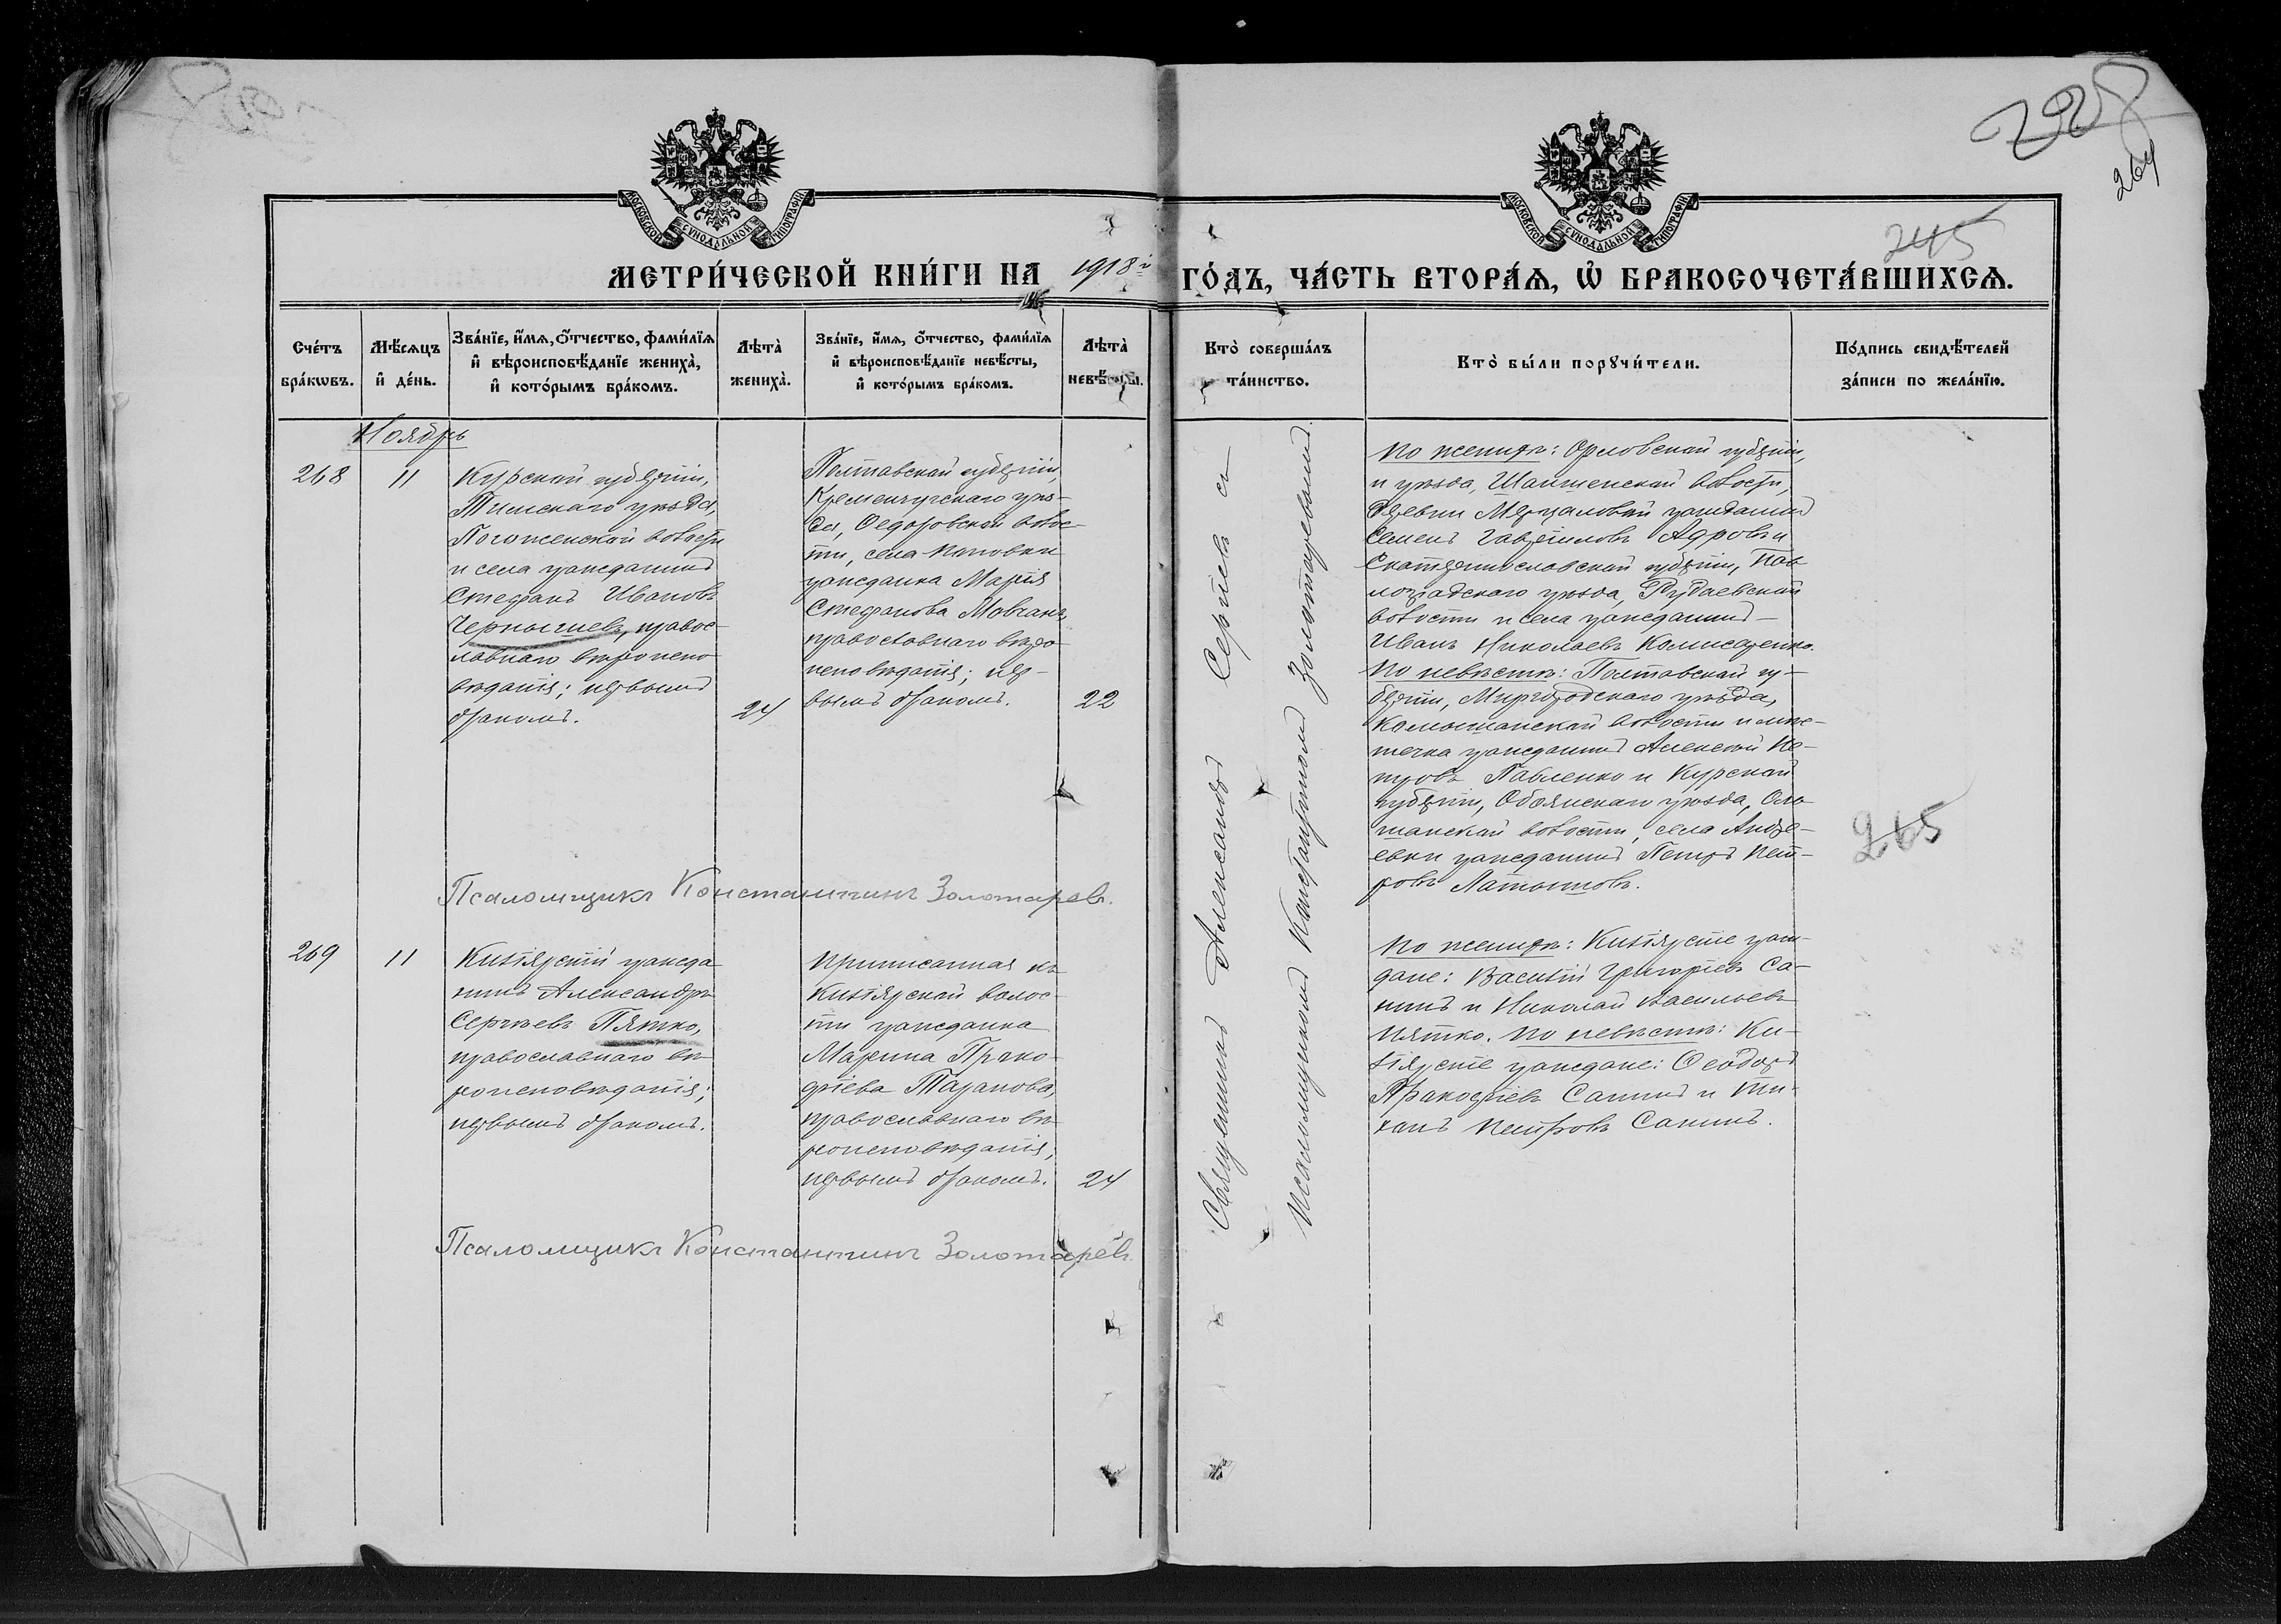 228
264
245
МОСКОВСКОЙ СѴНОДАЛЬНОЙ ТИПОГРАФІИ
МОСКОВСКОЙ СѴНОДАЛЬНОЙ ТИПОГРАФІИ
МЕТРИ́ЧЕСКОЙ КНИ́ГИ НА 1918 й ГО́ДЪ, ЧА́СТЬ ВТОРА́Ѧ, Ѽ БРАКОСОЧЕТА́ВШИХСѦ.
Сче́тъ бра́кѡвъ.
Мѣ́сѧцъ и҆ де́нь.
Зва́нїе, и҆́мѧ, ѻ҆́тчество, фами́лїѧ
и҆ вѣроисповѣ́данїе жениха̀,
и҆ кото́рымъ бра́комъ.
Лѣта̀ жениха̀.
Зва́нїе, и҆́мѧ, ѻ҆́тчество, фами́лїѧ
и҆ вѣроисповѣ́данїе невѣ́сты,
и҆ кото́рымъ бра́комъ.
Лѣта̀ невѣ́сты.
Кто̀ соверша́лъ та́инство.
Кто̀ бы́ли порꙋчи́тели.
По́дпись свидѣ́телей за́писи по жела́нїю.
Ноябрь
268
11
Курской губерніи,
Тимскаго уѣзда,
Погоженской волости
и села гражданинъ
Стефанъ Ивановъ
Чернышевъ, правос-
лавнаго вѣроиспо-
вѣданія; первымъ
бракомъ.
24
Полтавской губерніи,
Кременчугскаго уѣз-
да, Ѳедоровской волос-
ти, села Поповки
гражданка Марія
Стефанова Мовчанъ,
православнаго вѣро-
исповѣданія; пер-
вымъ бракомъ.
22
Священникъ Александръ Сергіевъ съ
псаломщикомъ Константиномъ Золотаревымъ.
По женихѣ: Орловской губерніи,
и уѣзда, волости,
деревни гражданинъ
Семенъ Гавріиловъ и
Екатеринославской губерніи, Пав-
лоградскаго уѣзда,
волости и села гражданинъ
Иванъ Николаевъ Комисаренко.
По невѣстѣ: Полтавской гу-
берніи, Миргородскаго уѣзда,
Комышанской волости и мѣс-
течка гражданинъ Алексѣй Пе-
тровъ Павленко и Курской
губерніи, Обоянскаго уѣзда, Оль-
шанской волости, села Андре-
евки гражданинъ Петръ Пет-
ровъ Латышовъ.
265
Псаломщикъ Константинъ Золотаревъ.
269
11
Кизіярскій гражда-
нинъ Александръ
Сергѣевъ Пятко,
православнаго вѣ-
роисповѣданія;
первымъ бракомъ.
Приписанная къ
Кизіярской волос-
ти гражданка
Марина Прако-
фіева Таранова,
православнаго вѣ-
роисповѣданія;
первымъ бракомъ.
24
По женихѣ: Кизіярскіе граж-
дане: Василій Григоріевъ Са-
нинъ и Николай Васильевъ
Пятко. По невѣстѣ: Ки-
зіярскіе граждане: Ѳеодоръ
Пракофіевъ Санинъ и Ти-
ханъ Петровъ Санинъ.
Псаломщикъ Константинъ Золотаревъ.